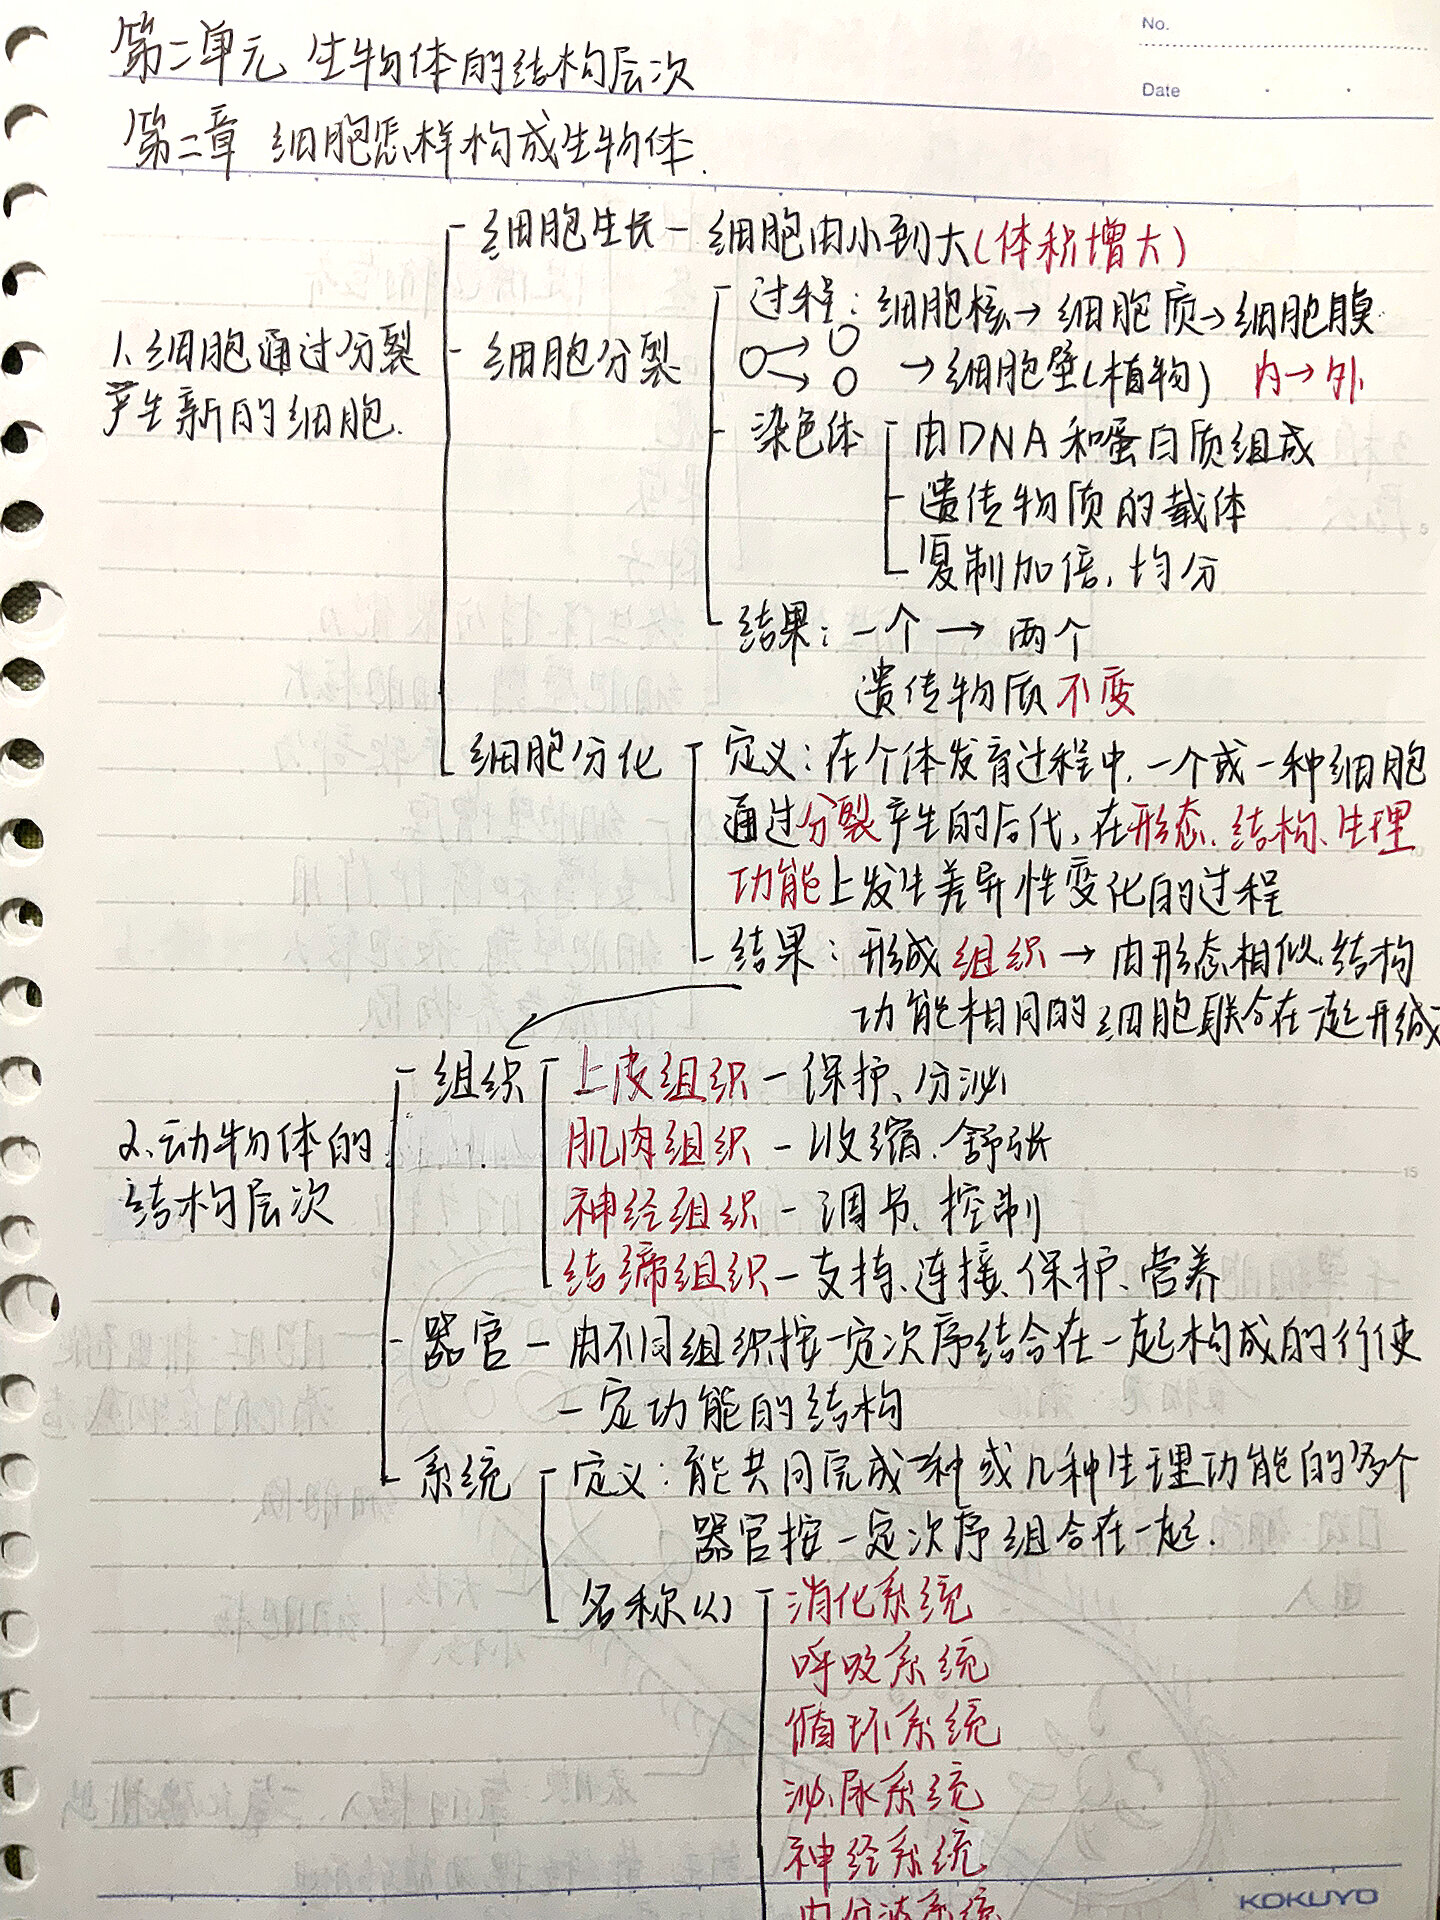 No.
Date
第二单元 生物体的结构层次
第二章 细胞怎样构成生物体.
细胞生长 - 细胞由小到大(体积增大)
过程: 细胞核→细胞质→细胞膜
1、细胞通过分裂
细胞分裂
→细胞壁(植物) 内→外
产生新的细胞.
染色体
由DNA和蛋白质组成
遗传物质的载体
复制加倍, 均分
结果: 一个 → 两个
遗传物质不变
细胞分化
定义: 在个体发育过程中, 一个或一种细胞
通过分裂产生的后代, 在形态、结构、生理
功能上发生差异性变化的过程
结果: 形成组织 → 由形态相似、结构
功能相同的细胞联合在一起形成
组织
上皮组织 - 保护、分泌
2、动物体的
肌肉组织 - 收缩、舒张
结构层次
神经组织 - 调节、控制
结缔组织 - 支持、连接、保护、营养
器官 - 由不同组织按一定次序结合在一起构成的行使
一定功能的结构
系统
定义: 能共同完成一种或几种生理功能的多个
器官按一定次序组合在一起.
名称(八)
消化系统
呼吸系统
循环系统
泌尿系统
神经系统
内分泌系统
KOKUYO